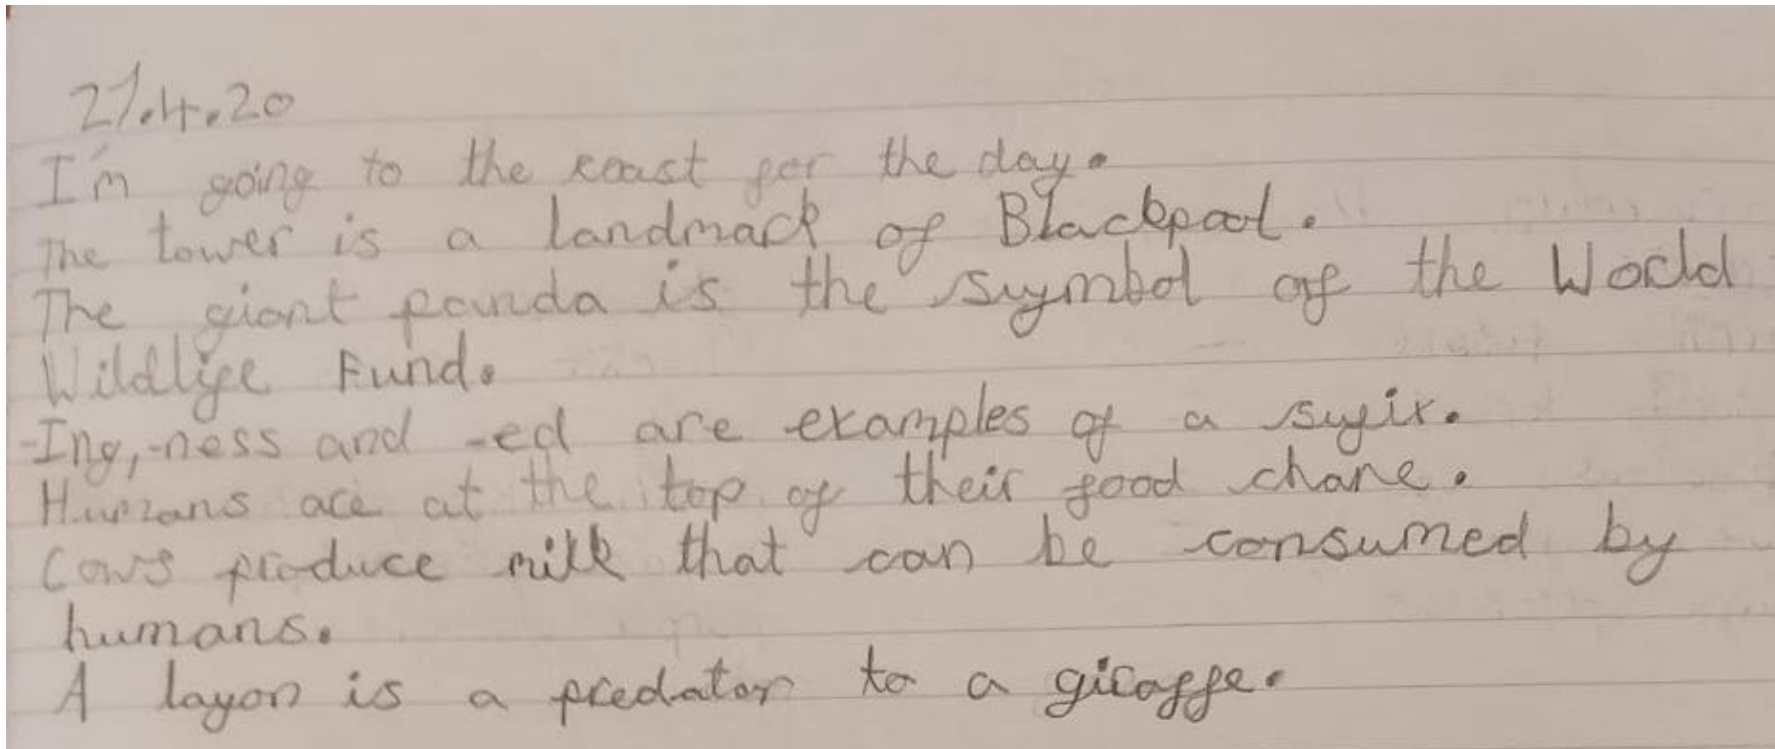 27.4.20
I'm going to the coast for the day.
The tower is a landmark of Blackpool.
The giant panda is the symbol of the World
Wildlife Fund.
-Ing, -ness and -ed are examples of a sufix.
Humans are at the top of their food chane.
Cows produce milk that can be consumed by
humans.
A layon is a predator to a giraffe.